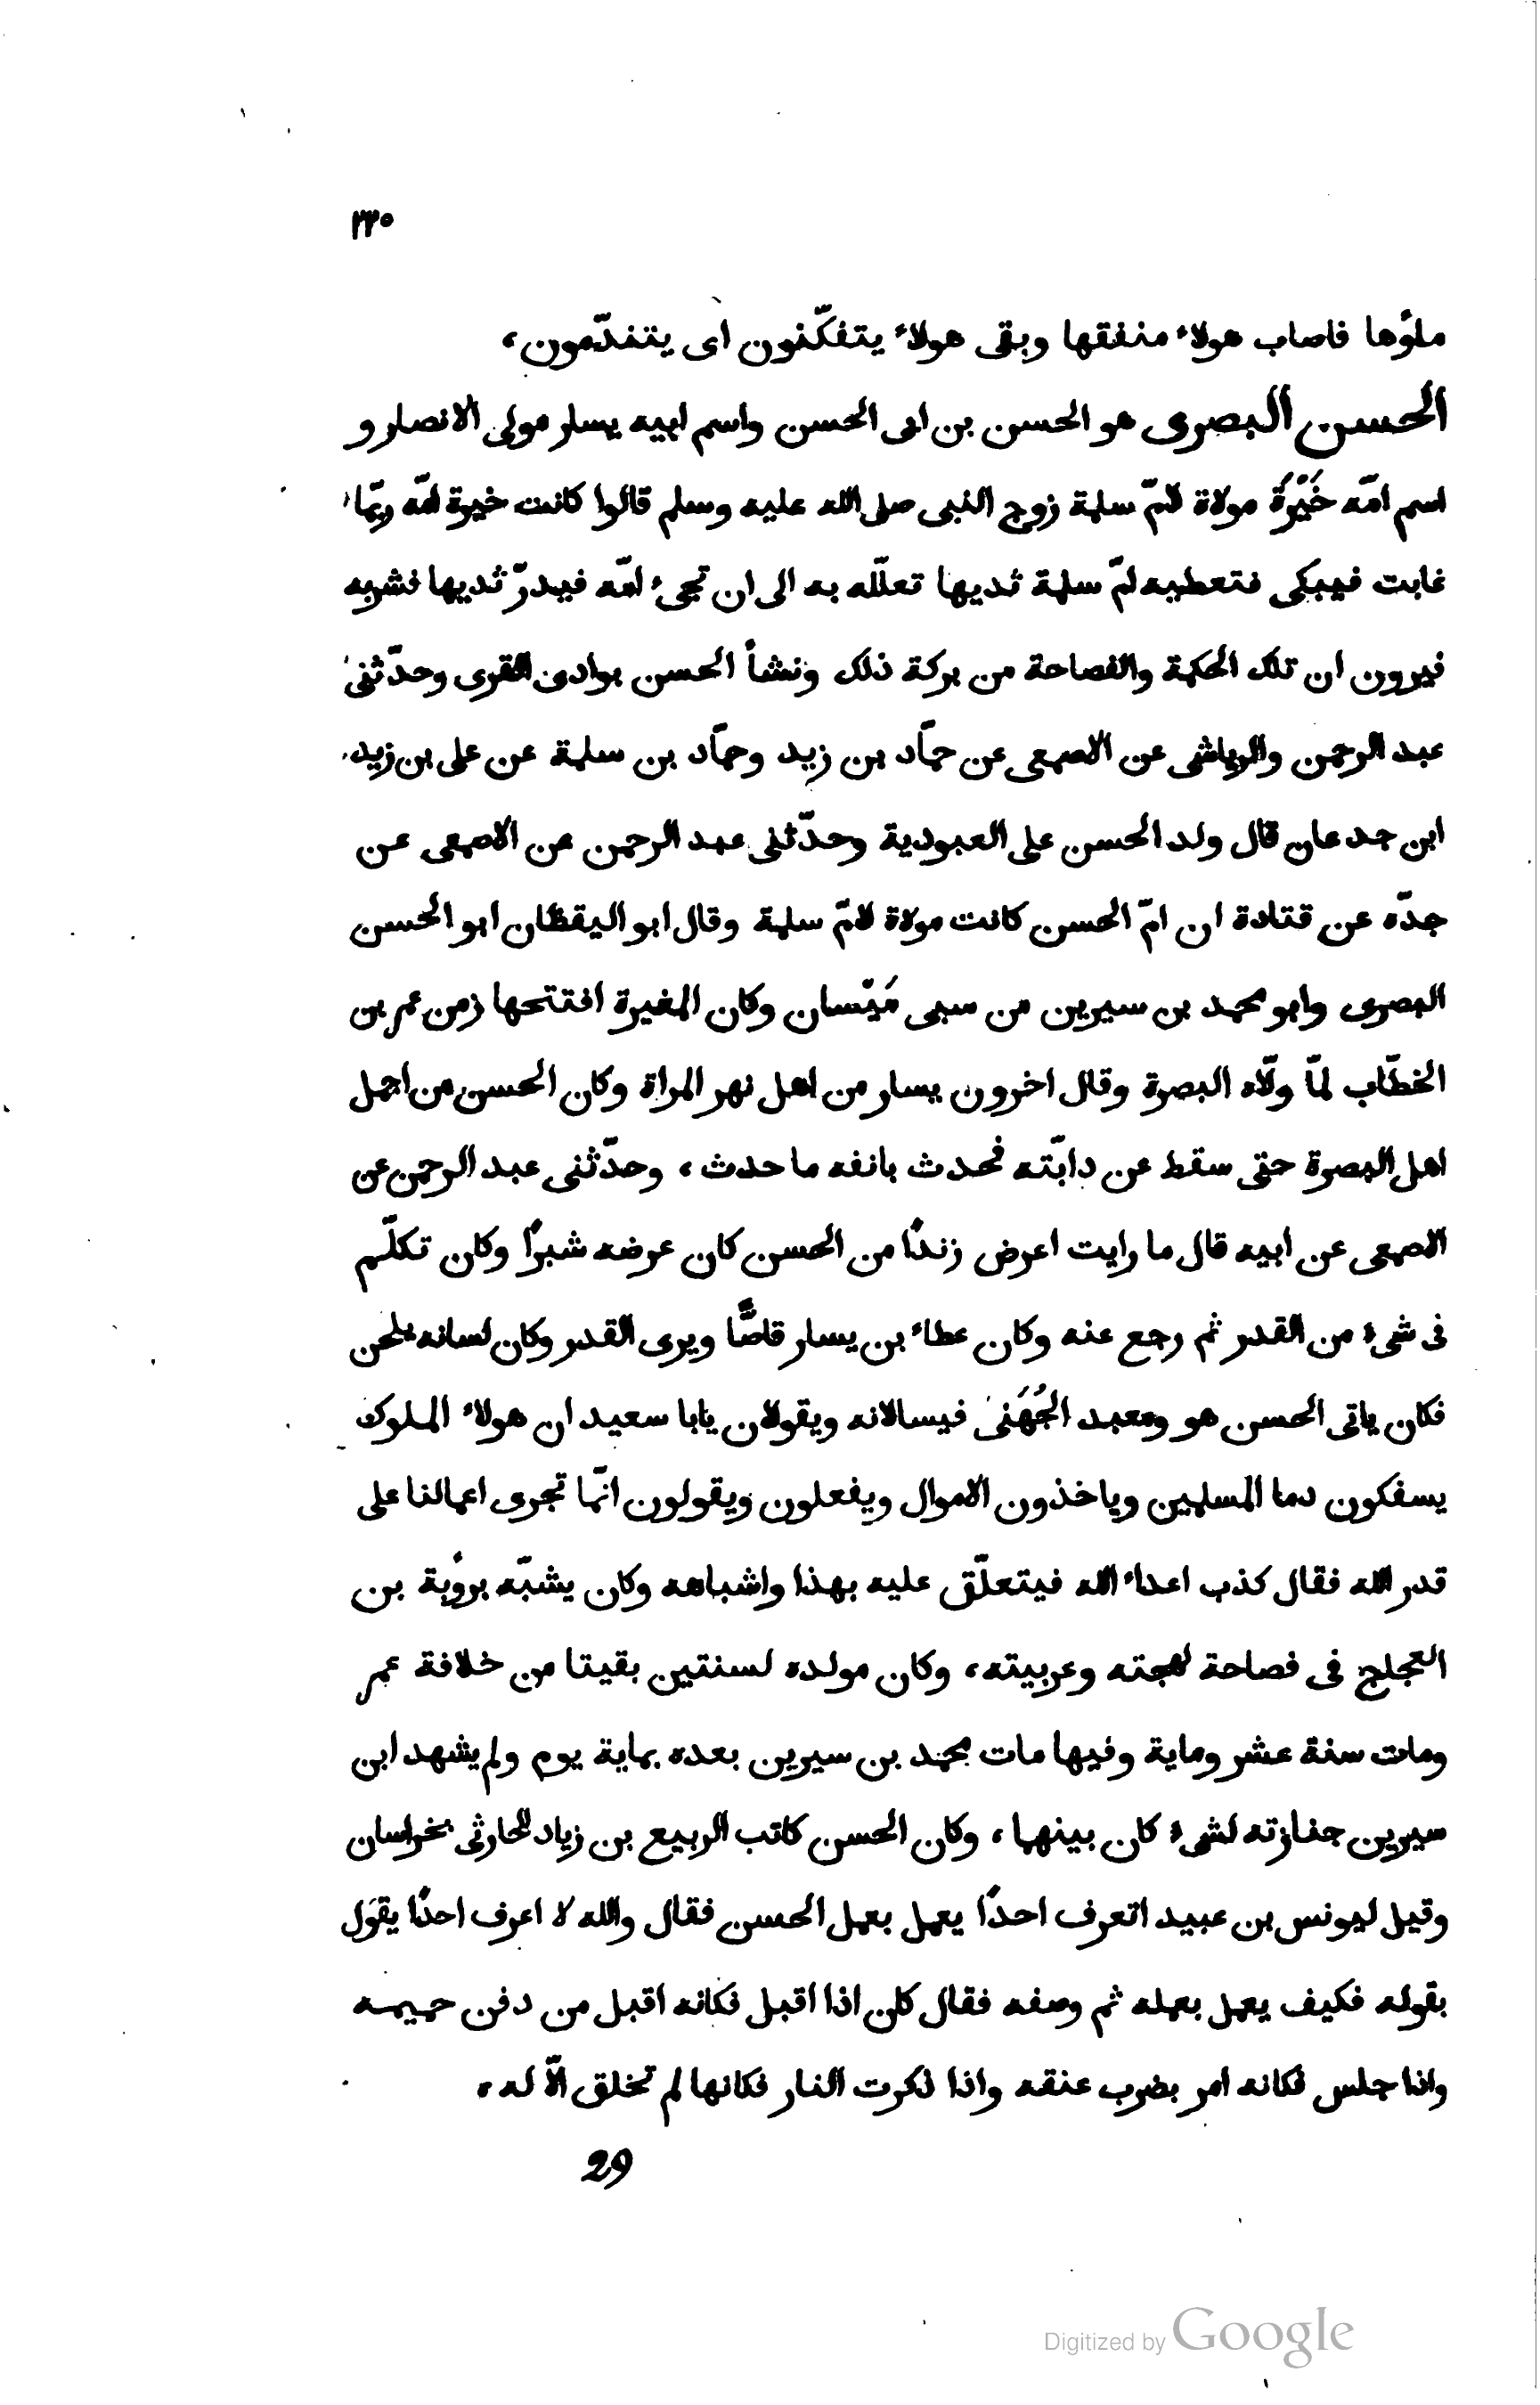 ٢٢٥
ملؤها فاصاب هولاء منفقها وبقى هولاء يتفكّنون اى يتندّمون،
الحسن البصرى هو الحسن بن ابى الحسن واسم ابيه يسار مولى الانصار و
اسم امّه خَيْرَة مولاة لامّ سلمة زوج النبى صلى الله عليه وسلم قالوا كانت خيرة امّه ربّما
غابت فيبكى فتعطيه امّ سلمة ثديها تعلّله به الى ان تجىء امّه فيدرّ ثديها فشربه
فيرون ان تلك الحكمة والفصاحة من بركة ذلك ونشأ الحسن بوادى القرى وحدّثنى
عبد الرحمن والرياشى عن الاصمعى عن حمّاد بن زيد وحمّاد بن سلمة عن على بن زيد
ابن جدعان قال ولد الحسن على العبودية وحدّثنى عبد الرحمن عن الاصمعى عن
جدّه عن قتادة ان امّ الحسن كانت مولاة لامّ سلمة وقال ابو اليقظان ابو الحسن
البصرى وابو محمد بن سيرين من سبى مَيْسان وكان المغيرة افتتحها زمن عمر بن
الخطّاب لمّا ولّاه البصرة وقال اخرون يسار من اهل نهر المراة وكان الحسن من اجمل
اهل البصرة حتى سقط عن دابّته فحدث بانفه ما حدث، وحدّثنى عبد الرحمن عن
الاصمعى عن ابيه قال ما رايت اعرض زندًا من الحسن كان عرضه شبرًا وكان تكلّم
فى شىء من القدر ثم رجع عنه وكان عطاء بن يسار قاصًّا ويرى القدر وكان لسانه يلحن
فكان ياتى الحسن هو ومعبد الجُهَنى فيسالانه ويقولان يابا سعيد ان هولاء الملوك
يسفكون دما المسلمين وياخذون الاموال ويفعلون ويقولون انّما تجرى اعمالنا على
قدر الله فقال كذب اعداء الله فيتعلّق عليه بهذا واشباهه وكان يشبّه برؤبة بن
العجاج فى فصاحة لهجته وعربيته، وكان مولده لسنتين بقيتا من خلافة عمر
ومات سنة عشر وماية وفيها مات محمد بن سيرين بعده بماية يوم ولم يشهد ابن
سيرين جنازته لشىء كان بينهما، وكان الحسن كاتب الربيع بن زياد الحارثى بخراسان
وقيل ليونس بن عبيد اتعرف احدًا يعمل بعمل الحسن فقال والله لا اعرف احدًا يقول
بقوله فكيف يعمل بعمله ثم وصفه فقال كان اذا اقبل فكانه اقبل من دفن حميمه
واذا جلس فكانه امر بضرب عنقه واذا ذكرت النار فكانها لم تخلق الّا له،
29
Digitized by Google